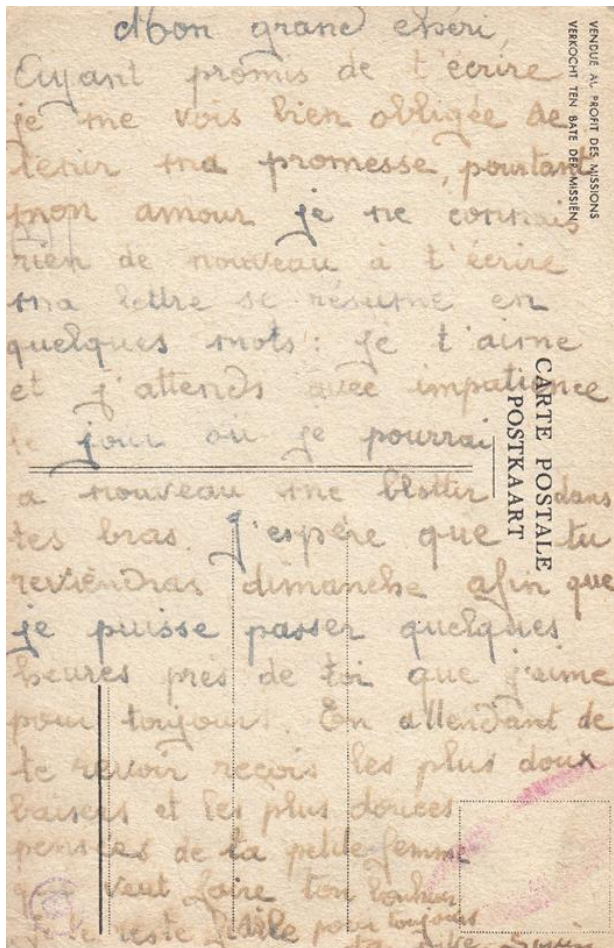 Mon grand chéri
Ayant promis de t'écrire
je me vois bien obligée de
tenir ma promesse, pourtant
mon amour je ne connais
rien de nouveau à t'écrire
ma lettre se résume en
quelques mots: je t'aime
et j'attends avec impatience
le jour où je pourrai
a nouveau me blottir dans
tes bras. J'espère que tu
reviendras dimanche afin que
je puisse passer quelques
heures près de toi que j'aime
pour toujours. En attendant de
te revoir reçois les plus doux
baisers et les plus douces
pensées de ta petite femme
qui veut faire ton bonheur
reste pour toujours
VENDUE AU PROFIT DES MISSIONS
VERKOCHT TEN BATE DER MISSIËN
CARTE POSTALE
POSTKAART